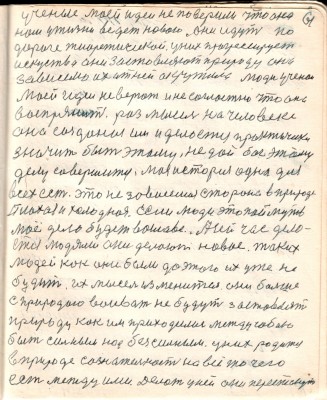 ученые моей идеи не поверили что она
нашу жизнь ведет нового. они идут по
дороге теоретической. у них прогрессирует
искусство они заставляют природу она
зависимо их от ней окружила. люди ученое
моей идеи не верят и не согласно что она
воспринят. раз мысля на человеке
она создана им и делается практически
значит быть этому. не дай бог этому
делу совершить. моя история одна для
всех есть. это не зависимая сторона в природе
плохая и холодная. если люди это поймут
мое дело будет в славе. А ней час дело
стал людями они делают новое. таких
людей как они были до этого их уже не
будит. их мысля изменится они больше
с природою воевать не будут заставлять
природу как им приходилось между собою
быть сильным над безсильным. у них родит
в природе сознательность на всё то чего
есть между ими. Делать у ней они перестанут